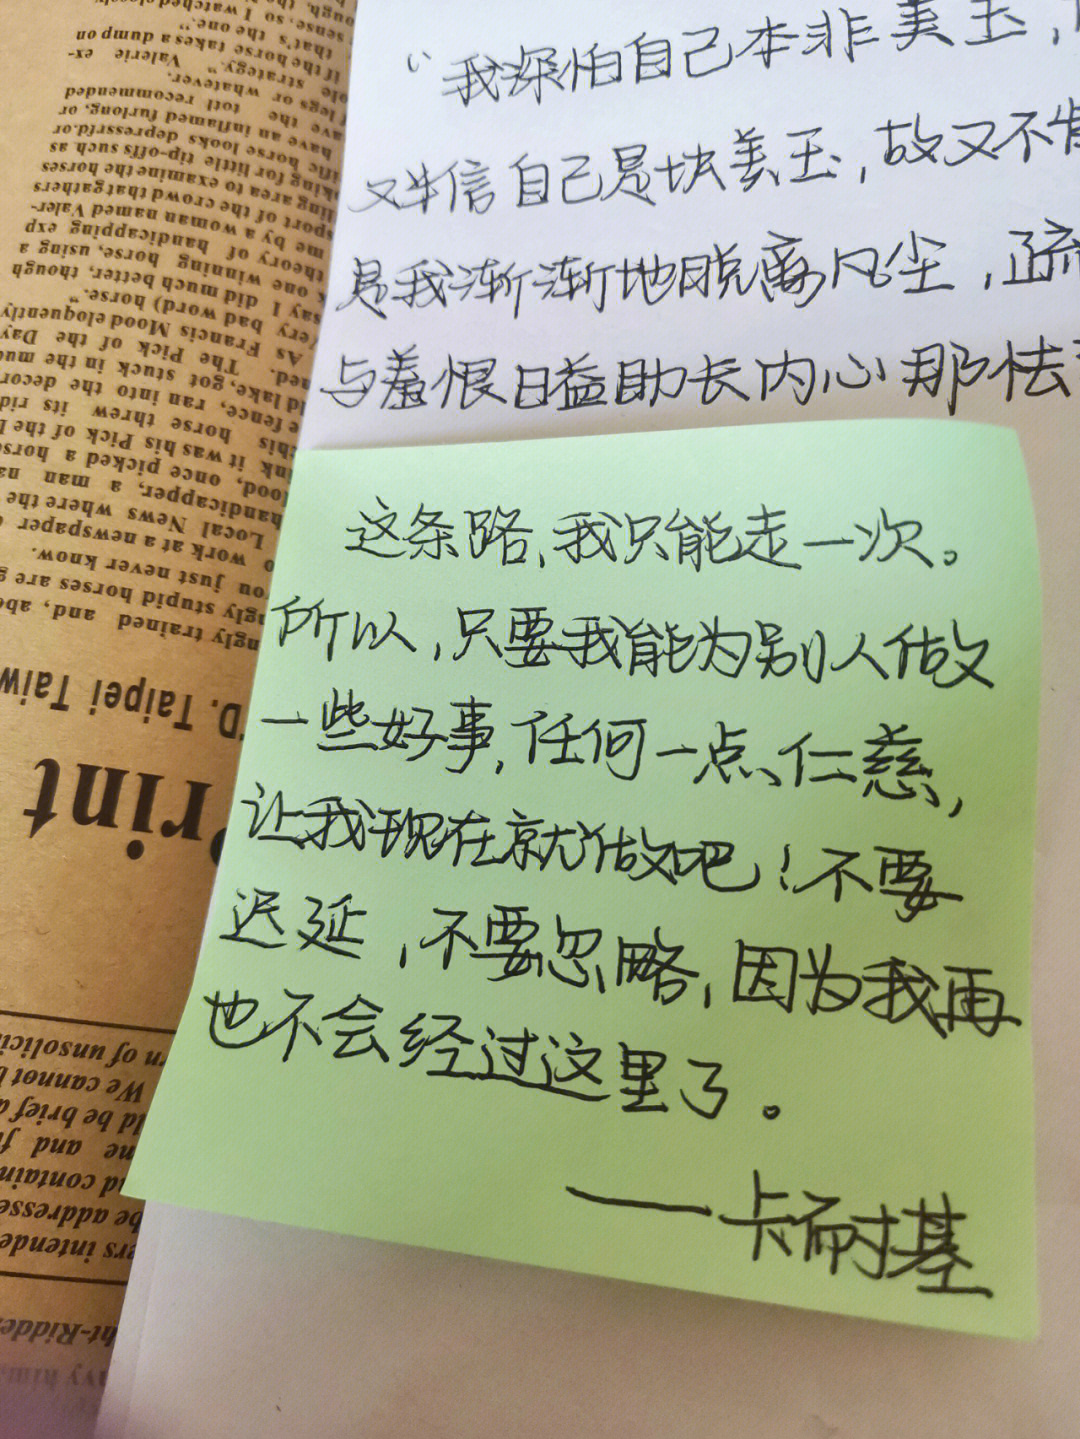 “我深怕自己本非美玉，
又半信自己是块美玉，故又不肯
是我渐渐地脱离凡尘，疏
与羞恨日益助长内心那怯
这条路，我只能走一次。
所以，只要我能为别人做
一些好事，任何一点仁慈，
让我现在就做吧！不要
迟延，不要忽略，因为我再
也不会经过这里了。
——卡耐基
sense, so I watched closely
that's the one."
if the horse takes a dump on
strategy." Valerie ex-
legs or whatever.
ave the totl recommended
have an inflamed furlong, or
fic horse looks depressrfd.or
king for little tip-offs such as
ling area to examine the horses
sport of the crowd that gathers
me by a woman named Valer-
theory of handicapping exp
k one winning horse, using a
say I did much better, though
very bad word) horse."
As Francis Mood eloquently
ned. The Pick of the Day
ld lake, got stuck in the muc
e fence, ran into the decor
this horse threw its rid
nk it was his Pick of the
lood, once picked a horse
handicapper, a man na
Local News where the
o work at a newspaper
ou just never know.
ngly stupid horses are g
ngly trained and, abe
D. Taipei Taiw
Print
rn of unsolici
We cannot b
ld be brief a
me and
nd contain
be addresse
ers intende
ht-Ridde